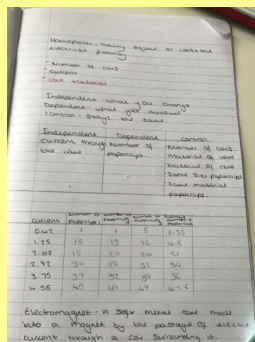 Homopolar - having equal or constant
electrical polarity
- Number of coils
- Current
- Core material
Independent - what you change
Dependent - what you measure
Control - Stays the same
Independent Dependent Control
Current through Number of Number of coils
the wire paperclips. Material of wire
Material of core
Same size paperclips
Same material
paperclips
Current Number of paperclips Number of paperclips Number of paperclips Average number of paperclips
0.42 1 1
1.25 15 13 15
2.08 15 20
2.92
3.75 36
4.56 45 49
Electromagnet - A soft metal core made
into a magnet by the passage of electric
current through a coil surrounding it.